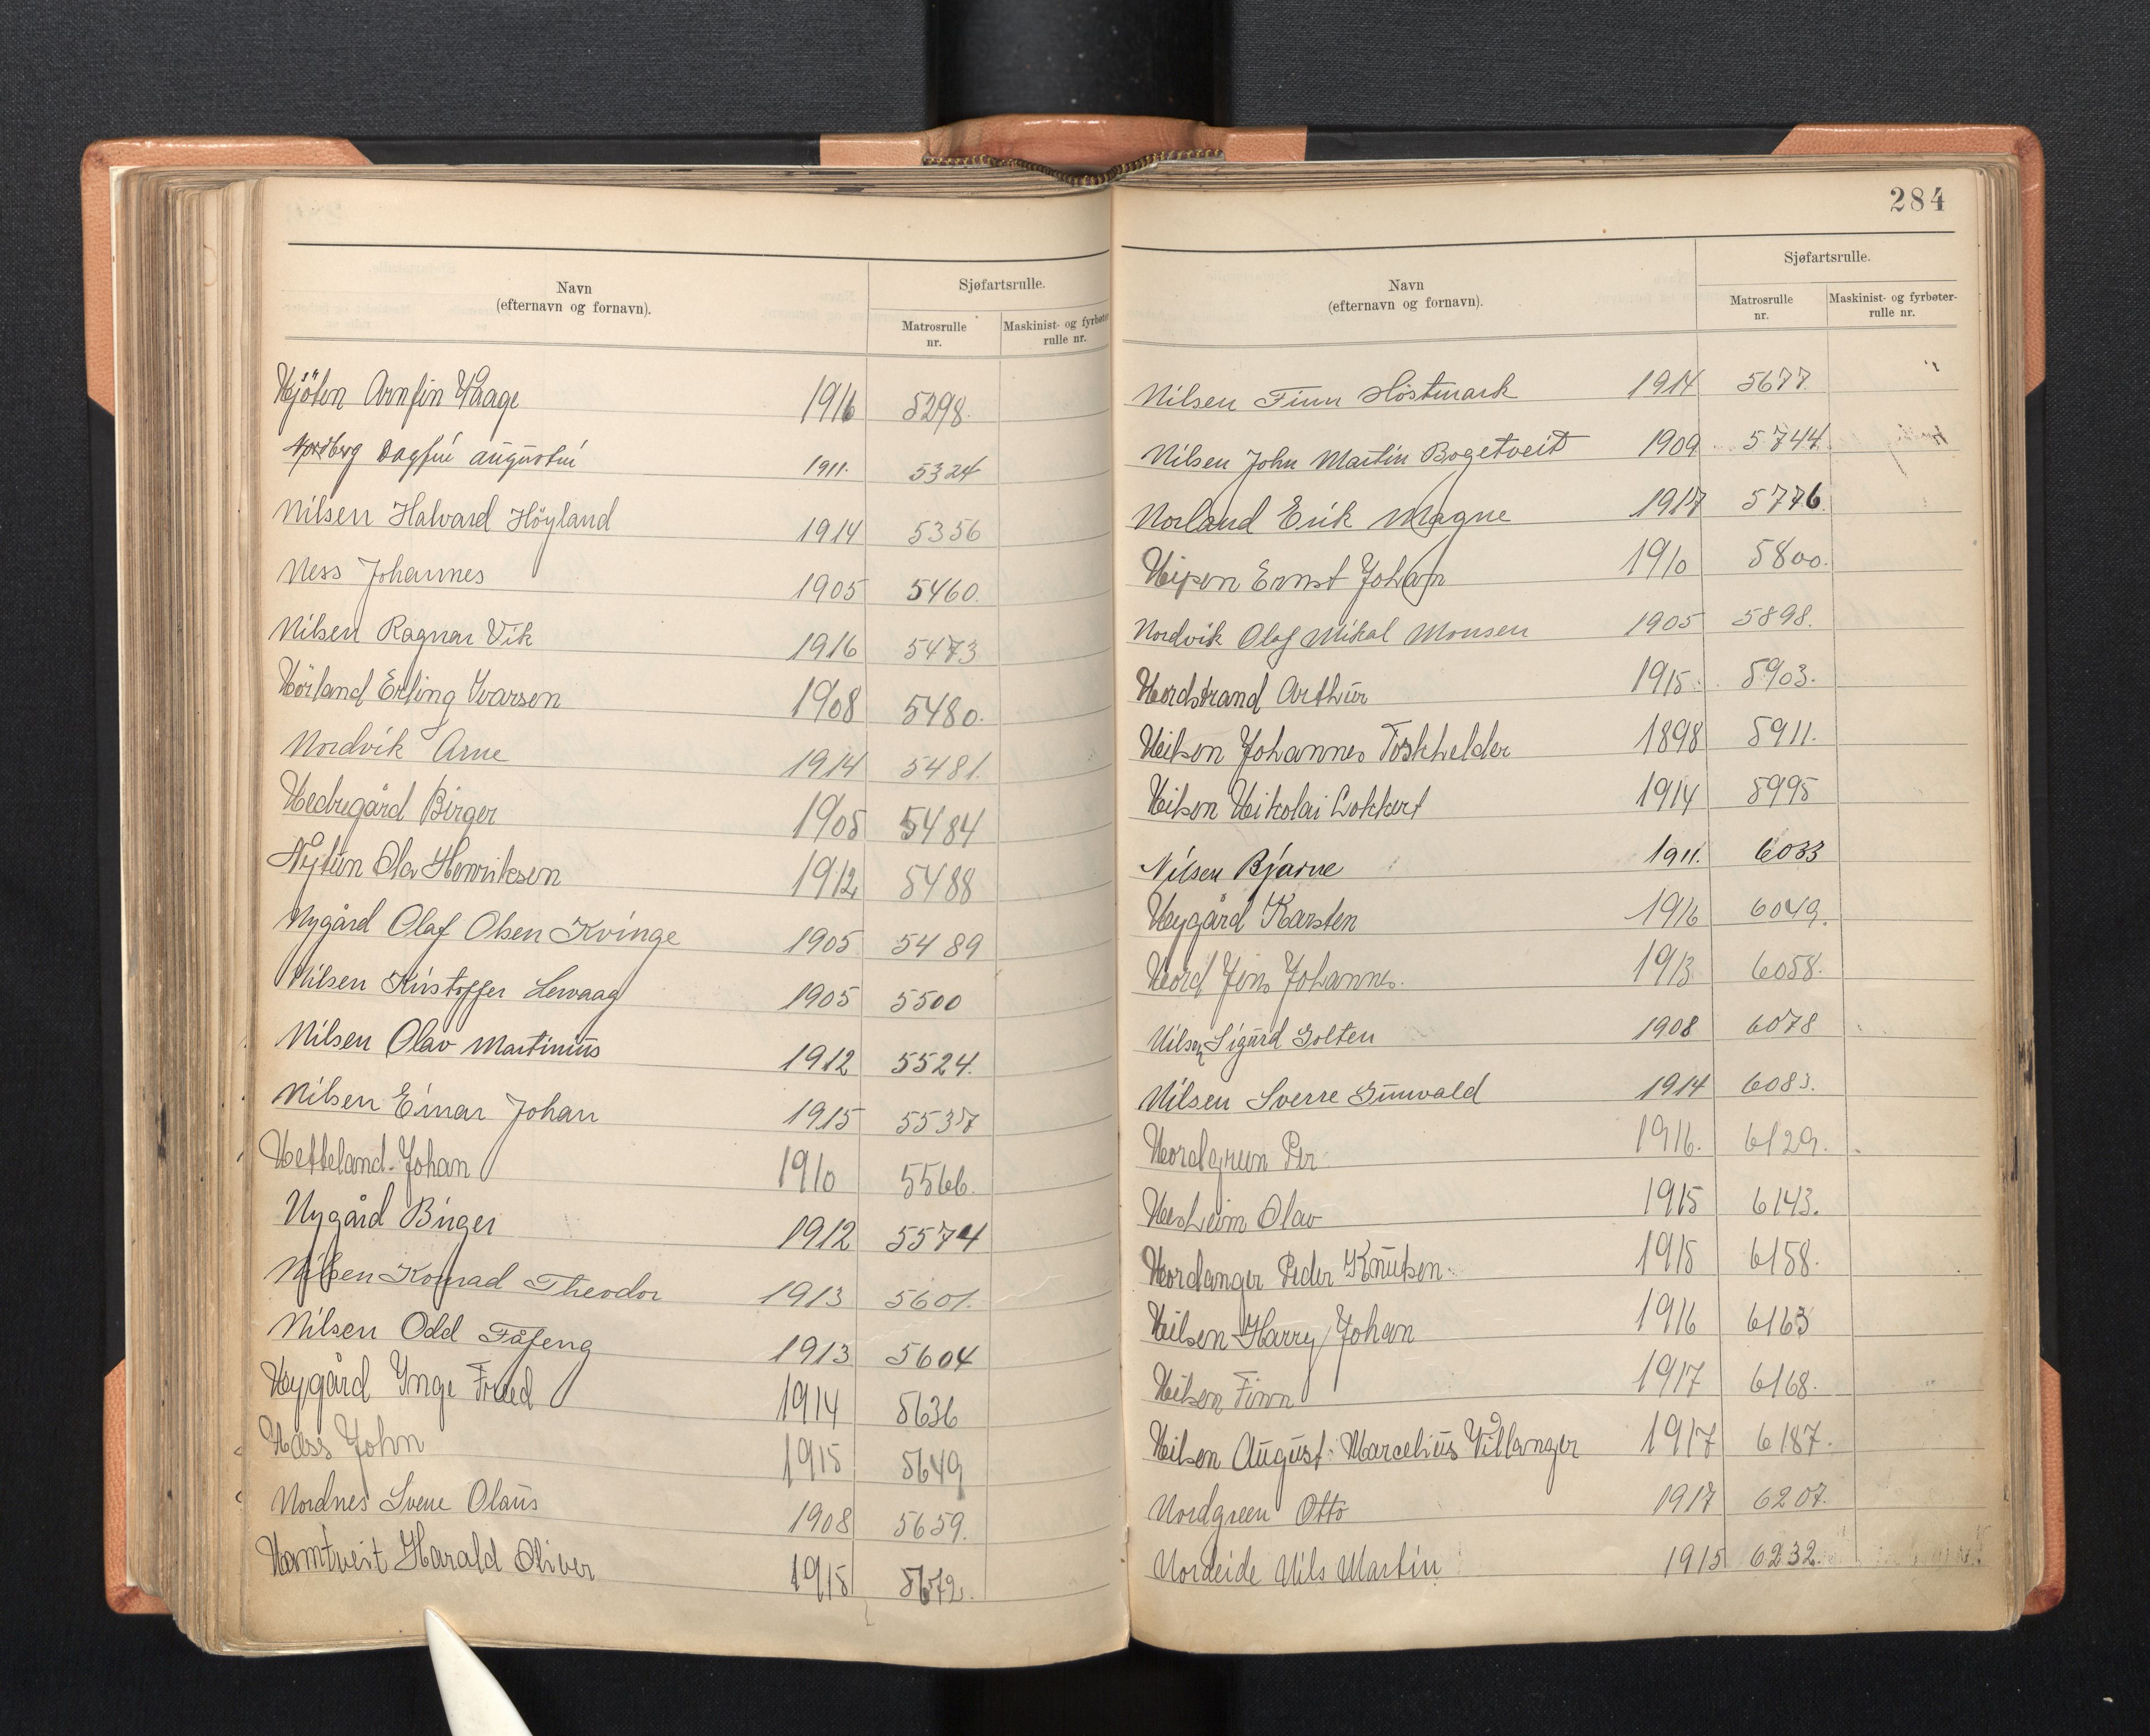 Navn
(efternavn og fornavn).
Sjøfartsrulle.
Matrosrulle
nr.
Maskinist- og fyrbøter-
rulle nr.
Njöten Arnfin Waage 1916 5298.
Nordberg Dagfin Augustin 1911. 5324
Nilsen Halvard Höyland 1914 5356
Ness Johannes 1905 5460.
Nilsen Ragnar Vik 1916 5473
Nörland Erling Ivarsen 1908 5480.
Nordvik Arne 1914 5481.
Nedregård Birger 1905 5484
Nytun Olav Henriksen 1912 5488
Nygård Olaf Olsen Kvinge 1905 5489
Nilsen Kristoffer Lervaag 1905 5500
Nilsen Olav Martinius 1912 5524.
Nilsen Einar Johan 1915 5537
Netteland Johan 1910 5566.
Nygård Birger 1912 5574
Nilsen Konrad Theodor 1913 5601.
Nilsen Odd Tåfeng 1913 5604
Nygård Inge Fred 1914 5636
Næss John 1915 5649
Nordnes Sverre Olaus 1908 5659.
Namtveit Harald Oliver 1915 5672.
284
Navn
(efternavn og fornavn).
Sjøfartsrulle.
Matrosrulle
nr.
Maskinist- og fyrbøter-
rulle nr.
Nilsen Finn Höstmark 1914 5677.
Nilsen John Martin Bogetveit 1909 5744.
Norland Erik Magne 1917 5776.
Nipen Ernst Johan 1910 5800.
Nordvik Olaf Mikal Monsen 1905 5898.
Nordstrand Arthur 1915 5903.
Nilsen Johannes Toskhelder 1898 5911.
Nilsen Nikolai Lokkert 1914 5995
Nilsen Bjarne 1911. 6033
Nygård Karsten 1916 6049.
Nord Jens Johannes. 1913 6058.
Nilsen Sigurd Golten 1908 6078
Nilsen Sverre Gunvald 1914 6083.
Nordgreen Per 1916. 6129.
Nesheim Olav 1915 6143.
Nordanger Peder Knutsen. 1915 6158.
Nilsen Harry Johan 1916 6163
Nilsen Finn 1917 6168.
Nilsen August Marcelius Villanger 1917 6187.
Nordgreen Otto 1917 6207.
Nordeide Nils Martin 1915 6232.